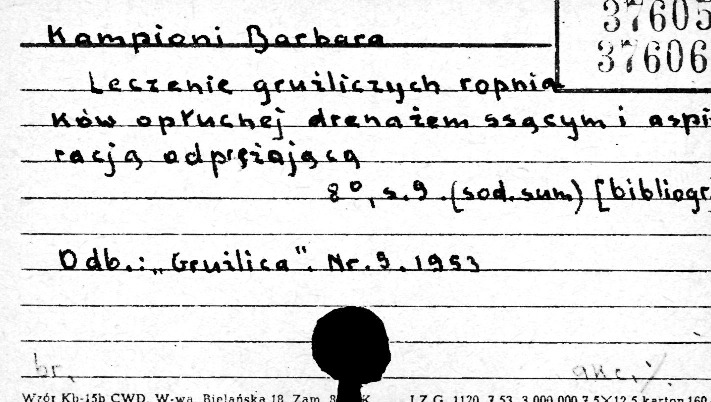 37605
37606
Kampioni Barbara
Leczenie gruźliczych ropnia
ków opłucnej drenażem ssącym i aspi
racją odprężającą
8°, s. 9. (sod. sum) [bibliogr
Odb.: „Gruźlica". Nr. 9. 1953
br.
Wzór Kb-15b CWD, W-wa, Bielańska 18. Zam.
I.Z.G. 1120. 7.53. 3.000.000 7,5×12,5 karton 160